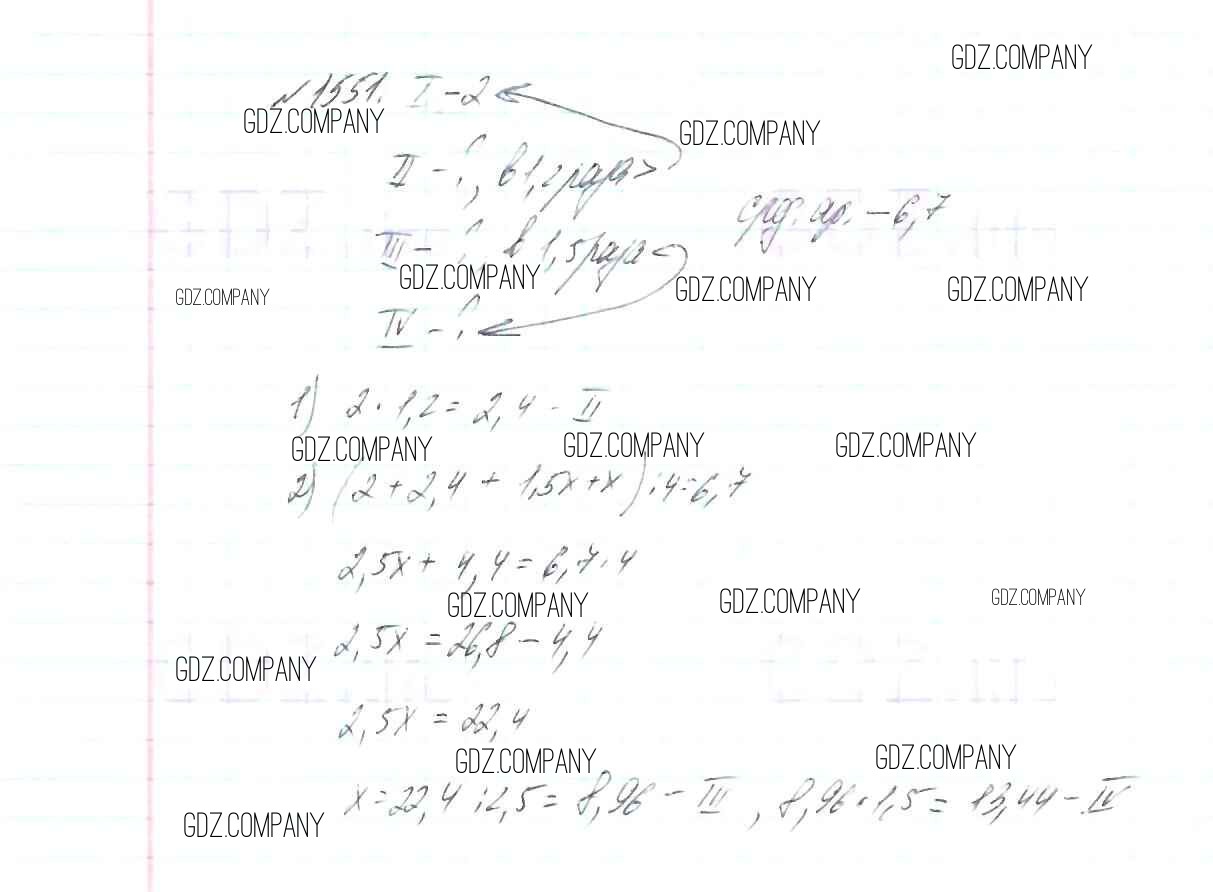 GDZ.COMPANY
№1551. I - 2
GDZ.COMPANY GDZ.COMPANY
II - ?, в 1,2 раза >
сред. ар. - 6,7
III - ?, в 1,5 раза <
GDZ.COMPANY GDZ.COMPANY GDZ.COMPANY GDZ.COMPANY
IV - ?
1) 2 · 1,2 = 2,4 - II
GDZ.COMPANY GDZ.COMPANY GDZ.COMPANY
2) (2 + 2,4 + 1,5x + x) : 4 = 6,7
2,5x + 4,4 = 6,7 · 4
GDZ.COMPANY GDZ.COMPANY GDZ.COMPANY
2,5x = 26,8 - 4,4
GDZ.COMPANY
2,5x = 22,4
GDZ.COMPANY GDZ.COMPANY
x = 22,4 : 2,5 = 8,96 - III, 8,96 · 1,5 = 13,44 - IV
GDZ.COMPANY